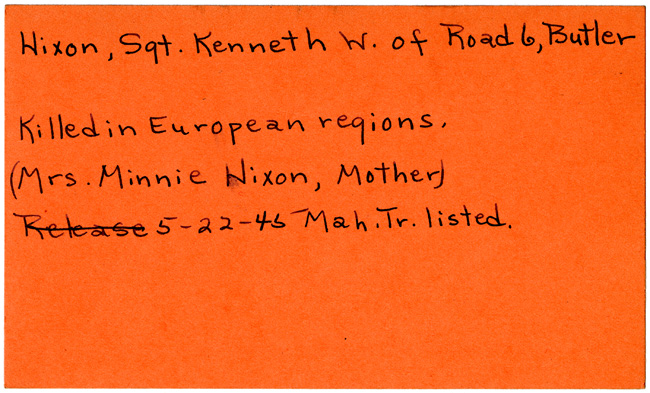 Nixon, Sgt. Kenneth W. of Road 6, Butler
Killed in European regions.
(Mrs. Minnie Nixon, Mother)
Release 5-22-45 Mah. Tr. listed.